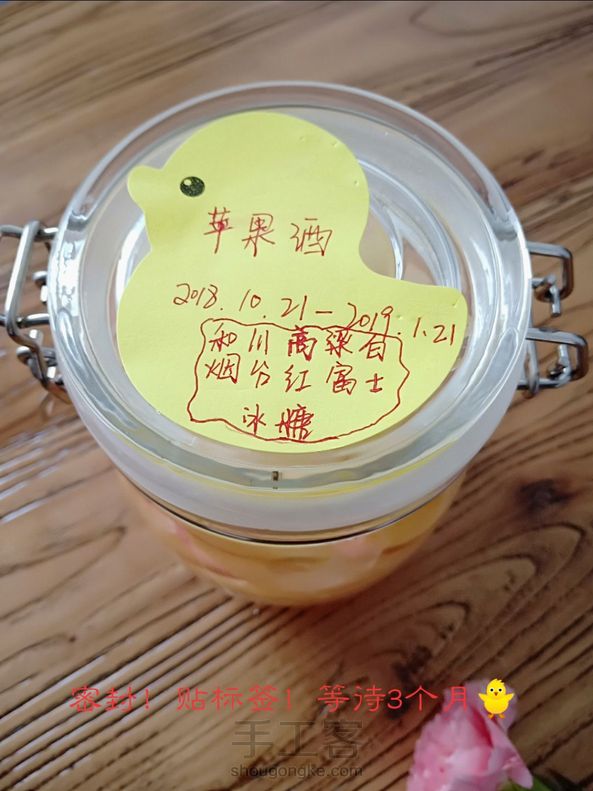 苹果酒
2018.10.21—2019.1.21
和川高粱白
烟台红富士
冰糖
密封！贴标签！等待3个月🐥
手工客
shougongke.com